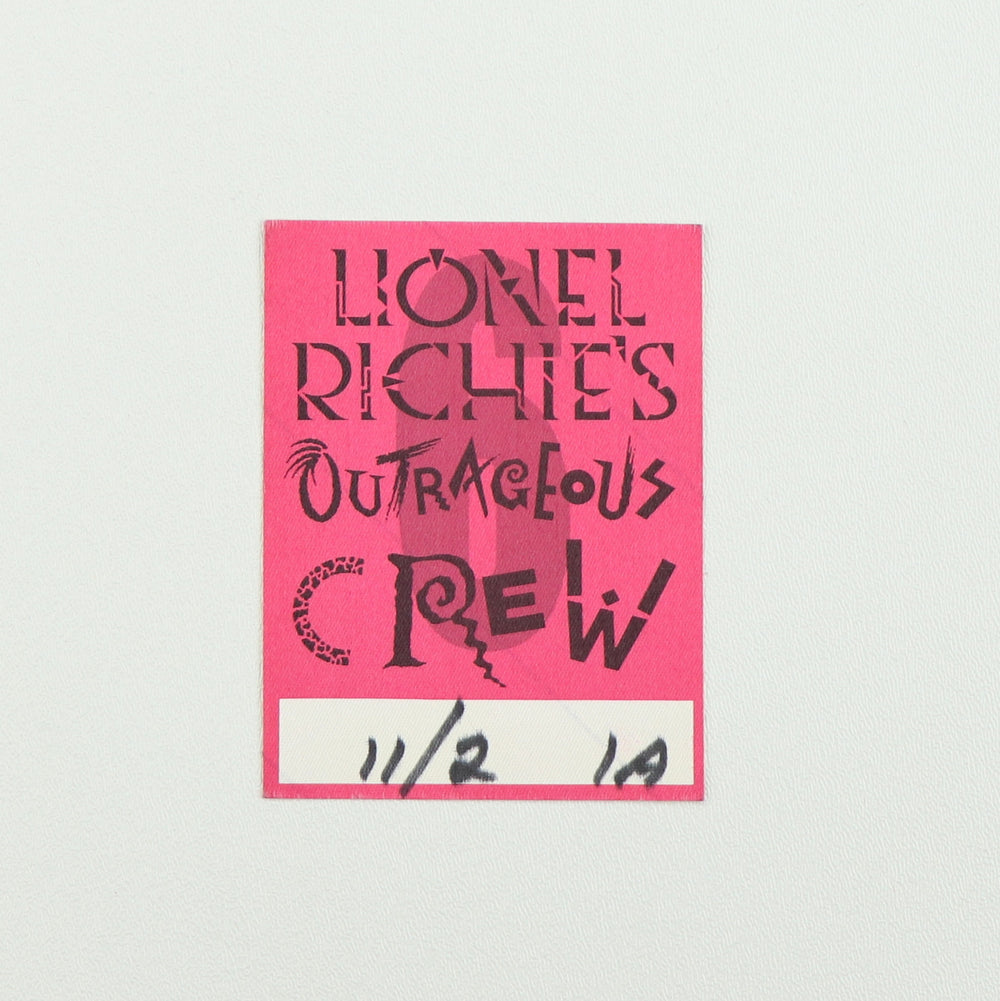 LIONEL
RICHIE'S
OUTRAGEOUS
CREW
6
11/2 1A